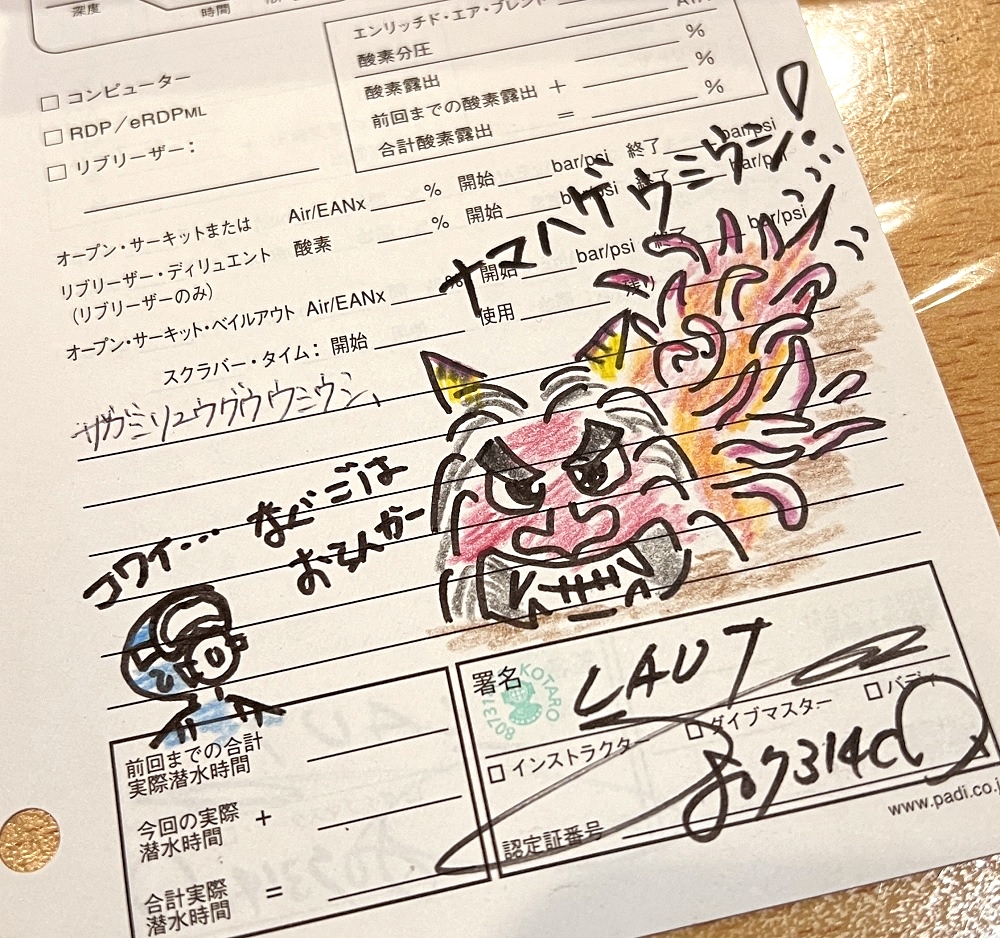 深度
時間
エンリッチド・エア・ブレンド
酸素分圧 %
酸素露出 %
前回までの酸素露出 + %
合計酸素露出 =
□ コンピューター
□ RDP/eRDPML
□ リブリーザー:
オープン・サーキットまたは Air/EANx % 開始 bar/psi 終了 bar/psi
リブリーザー・ディリュエント 酸素 % 開始 bar/psi 終了 bar/psi
(リブリーザーのみ)
オープン・サーキット・ベイルアウト Air/EANx % 開始 bar/psi 終了 bar/psi
スクラバー・タイム: 開始 使用 残り
ナマハゲウミウシ!
サガミリュウグウウミウシ、
コワイ… なぐごは
おらんかー
前回までの合計
実際潜水時間
今回の実際
潜水時間 +
合計実際
潜水時間 =
署名 LAUT
KOTARO
807314
□ インストラクター □ ダイブマスター □ バディ
認定証番号 807314
www.padi.co.j